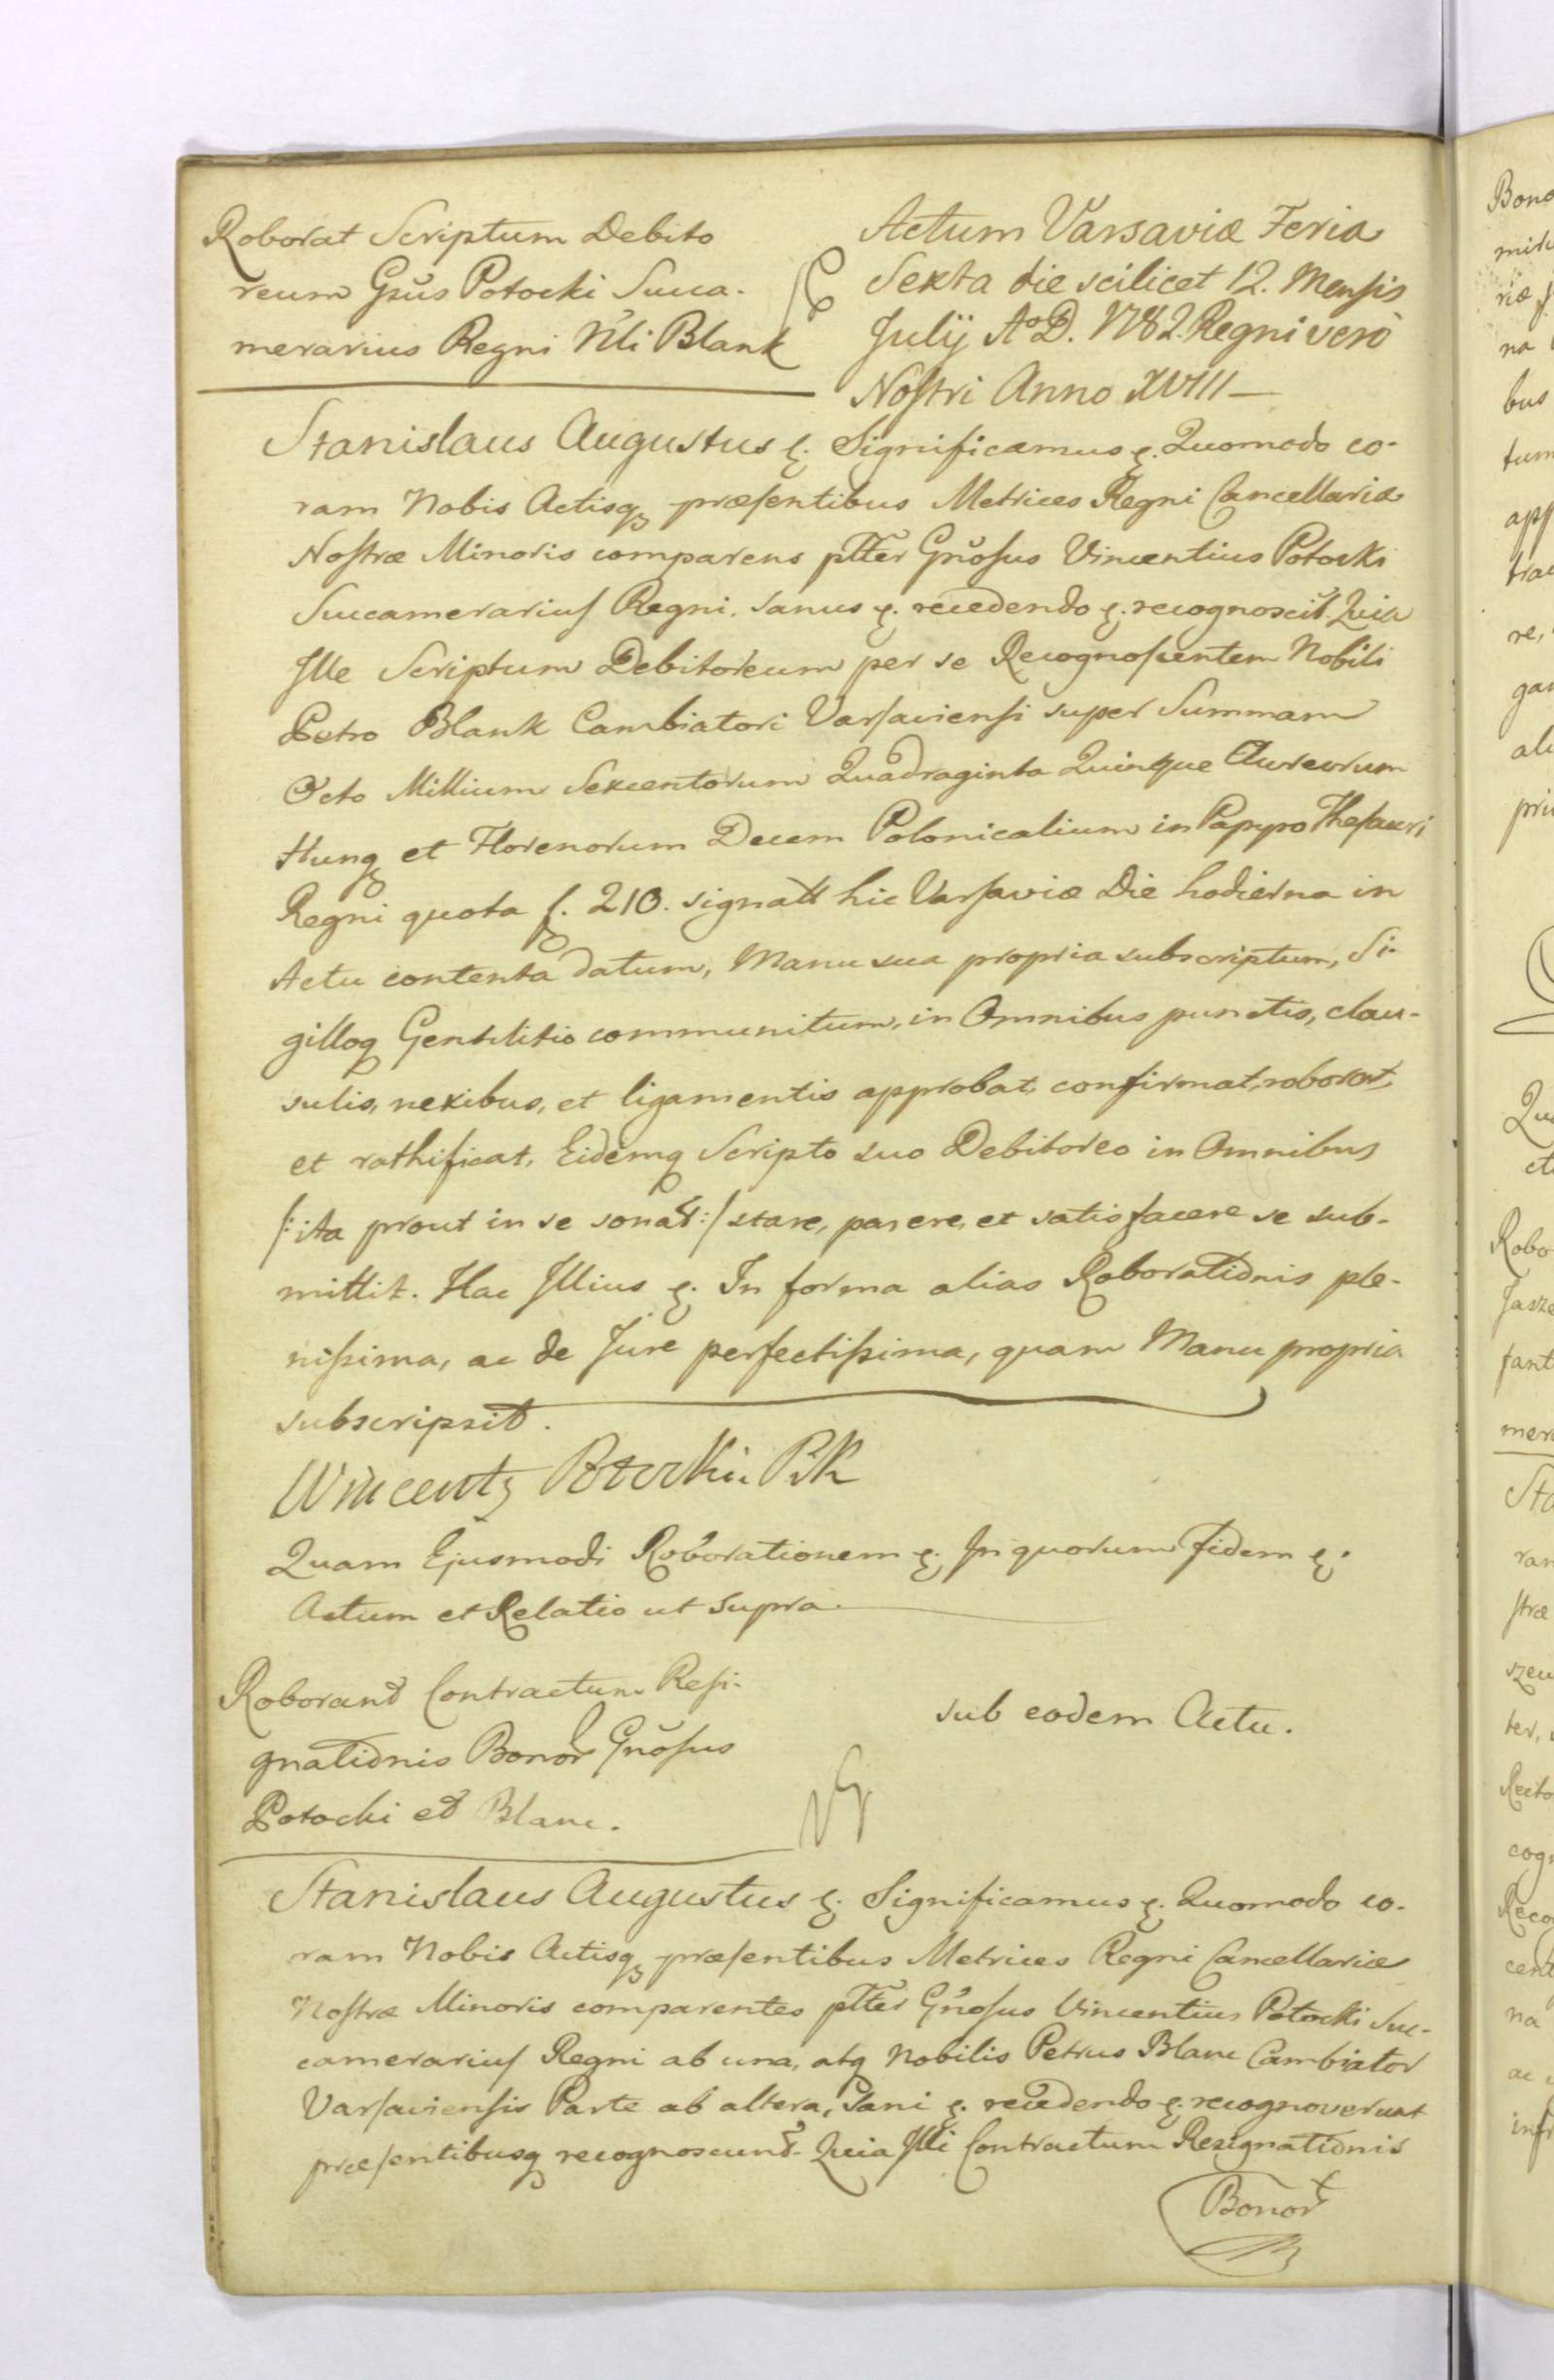 Roborat Scriptum Debito
reum Gn̄s Potocki Succa-
merarius Regni Nli Blank
Actum Varsaviæ Feria
Sexta die scilicet 12. Mensis
Julij A°D. 1782. Regni verò
Nostri Anno XVIII—
Stanislaus Augustus &. Significamus &. Quomodo co-
ram Nobis Actisq præsentibus Metrices Regni Cancellariæ
Nostræ Minoris comparens pltter Gn̄osus Vincentius Potocki
Succamerarius Regni. sanus &. recedendo &. recognoscit. Quia
Ille Scriptum Debitoreum per se Recognoscentem Nobili
Petro Blank Cambiatori Varsaviensi super Summam
Octo Millium Sexcentorum Quadraginta Quinque Aureorum
Hung et Florenorum Decem Polonicalium in Papyro Thesauri
Regni quota f. 210. signatt hic Varsaviæ Die hodierna in
Actu contenta datum, Manu sua propria subscriptum, Si-
gilloq Gentilitio communitum, in Omnibus punctis, clau-
sulis, nexibus, et ligamentis approbat, confirmat, roborat,
et rathificat, Eidemq Scripto suo Debitoreo in Omnibus
/: ita prout in se sonat :/ stare, parere, et satisfacere se sub-
mittit. Hac Illius &. In forma alias Roborationis ple-
nissima, ac de Jure perfectissima, quam Manu propria
subscripsit.
Wincenty Potocki PK
Quam Ejusmodi Roborationem &. In quorum fidem &.
Actum et Relatio ut supra.
Roborant Contractum Resi-
gnationis Bonor Gn̄osus
Potocki et Blanc.
sub eodem Actu.
Stanislaus Augustus &. Significamus &. Quomodo co-
ram Nobis Actisq præsentibus Metrices Regni Cancellariæ
Nostræ Minoris comparentes pltter Gn̄osus Vincentius Potocki Suc-
camerarius Regni ab una, atq Nobilis Petrus Blanc Cambiator
Varsaviensis Parte ab altera, Sani &. recedendo &. recognoverunt
præsentibusq recognoscunt. Quia Illi Contractum Resignationis
Bonor